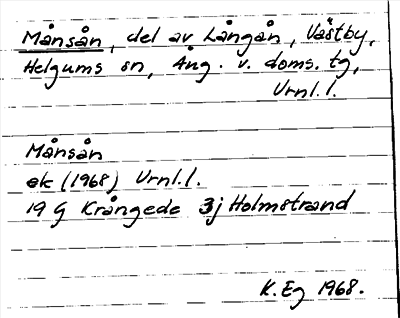 Månsån, del av Långån, Västby,
Helgums sn, Ång. v. doms. tg,
Vrnl.l.
Månsån
ek (1968) Vrnl.l.
19 G Krångede 3j Holmstrand
K. Eg 1968.